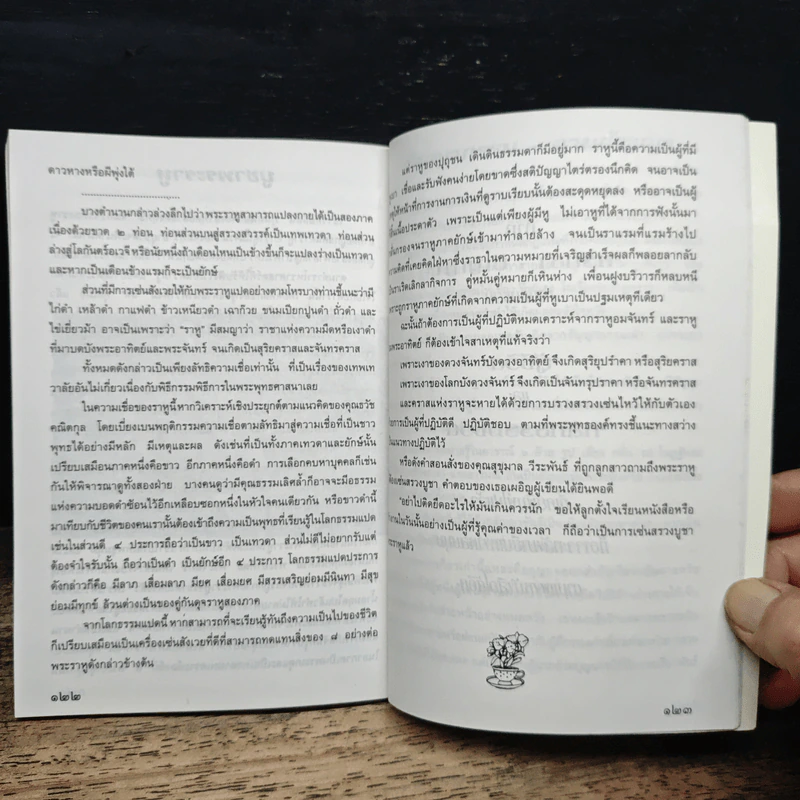 ดาวหางหรือผีพุ่งใต้
บางตำนานกล่าวล่วงลึกไปว่า พระราหูสามารถแปลงกายได้เป็นสองภาค
เนื่องด้วยขาด ๒ ท่อน ท่อนส่วนบนสู่สรวงสวรรค์เป็นเทพเทวดา ท่อนส่วน
ล่างสู่โลกันตร์อเวจี หรือนัยหนึ่งถ้าเดือนไหนเป็นข้างขึ้นก็จะแปลงร่างเป็นเทวดา
และหากเป็นเดือนข้างแรมก็จะเป็นยักษ์
ส่วนที่มีการเซ่นสังเวยให้กับพระราหูแปดอย่างตามโหรบางท่านชี้แนะว่ามี
ไก่ดำ เหล้าดำ กาแฟดำ ข้าวเหนียวดำ เฉาก๊วย ขนมเปียกปูนดำ ถั่วดำ และ
ไข่เยี่ยวม้า อาจเป็นเพราะว่า "ราหู" มีสมญาว่า ราชาแห่งความมืดหรือเงาดำ
ที่มาบดบังพระอาทิตย์และพระจันทร์ จนเกิดเป็นสุริยคราสและจันทรคราส
ทั้งหมดดังกล่าวเป็นเพียงลัทธิความเชื่อเท่านั้น ที่เป็นเรื่องของเทพเท
วาลัยอันไม่เกี่ยวเนื่องกับพิธีกรรมพิธีการในพระพุทธศาสนาเลย
ในความเชื่อของราหูนี้หากวิเคราะห์เชิงประยุกต์ตามแนวคิดของคุณธวัช
คณิตกุล โดยเบี่ยงเบนพฤติกรรมความเชื่อตามลัทธิมาสู่ความเชื่อที่เป็นชาว
พุทธได้อย่างมีหลัก มีเหตุและผล ดังเช่นที่เป็นทั้งภาคเทวดาและยักษ์นั้น
เปรียบเสมือนภาคหนึ่งคือขาว อีกภาคหนึ่งคือดำ การเลือกคบหาบุคคลก็เช่น
กันให้พิจารณาดูทั้งสองฝ่าย บางคนดูว่ามีคุณธรรมเลิศล้ำก็อาจจะมีอธรรม
แห่งความบอดดำซ้อนไว้อีกเหลือบซอกหนึ่งในหัวใจคนเดียวกัน หรือขาวดำนี้
มาเทียบกับชีวิตของคนเรานั้นต้องเข้าถึงความเป็นพุทธที่เรียนรู้ในโลกธรรมแปด
เช่นในส่วนดี ๔ ประการถือว่าเป็นขาว เป็นเทวดา ส่วนไม่ดีไม่อยากรับแต่
ต้องจำใจรับนั้น ถือว่าเป็นดำ เป็นยักษ์อีก ๔ ประการ โลกธรรมแปดประการ
ดังกล่าวก็คือ มีลาภ เสื่อมลาภ มียศ เสื่อมยศ มีสรรเสริญย่อมมีนินทา มีสุข
ย่อมมีทุกข์ ล้วนต่างเป็นของคู่กันดุจราหูสองภาค
จากโลกธรรมแปดนี้ หากสามารถที่จะเรียนรู้ทันถึงความเป็นไปของชีวิต
ก็เปรียบเสมือนเป็นเครื่องเซ่นสังเวยที่ดีที่สามารถทดแทนสิ่งของ ๘ อย่างต่อ
พระราหูดังกล่าวข้างต้น
๑๒๒
แต่ราหูของปุถุชน เดินดินธรรมดาก็มีอยู่มาก ราหูนี้คือความเป็นผู้ที่มี
เชื่อและรับฟังคนง่ายโดยขาดซึ่งสติปัญญาไตร่ตรองนึกคิด จนอาจเป็น
ให้หน้าที่การงานการเงินที่ดูราบเรียบนั้นต้องสะดุดหยุดลง หรืออาจเป็นผู้
เนื้อประดาตัว เพราะเป็นแต่เพียงผู้มีหู ไม่เอาหูที่ได้จากการฟังนั้นมา
กรองจนราหูภาคยักษ์เข้ามาทำลายล้าง จนเป็นราแรมที่แรมร้างไป
ความคิดที่เคยคิดใฝ่หาซึ่งราธาในความหมายที่เจริญสำเร็จผลก็พลอยลากลับ
เป็นราเริดเลิกลากิจการ คู่หมั้นคู่หมายก็เหินห่าง เพื่อนฝูงบริวารก็หลบหนี
เพราะถูกราหูภาคยักษ์ที่เกิดจากความเป็นผู้ที่หูเบาเป็นปฐมเหตุทีเดียว
ฉะนั้นถ้าต้องการเป็นผู้ที่ปฏิบัติหมดเคราะห์จากราหูอมจันทร์ และราหู
พระอาทิตย์ ก็ต้องเข้าใจสาเหตุที่แท้จริงว่า
เพราะเงาของดวงจันทร์บังดวงอาทิตย์ จึงเกิดสุริยุปราคา หรือสุริยคราส
เพราะเงาของโลกบังดวงจันทร์ จึงเกิดเป็นจันทรุปราคา หรือจันทรคราส
และคราสแห่งราหูจะหายได้ด้วยการบรวงสรวงเซ่นไหว้ให้กับตัวเอง
โดยการเป็นผู้ที่ปฏิบัติดี ปฏิบัติชอบ ตามที่พระพุทธองค์ทรงชี้แนะทางสว่าง
แนวทางปฏิบัติไว้
หรือดังคำสอนสั่งของคุณสุขุมาล วีระพันธ์ ที่ถูกลูกสาวถามถึงพระราหู
ต้องเซ่นสรวงบูชา คำตอบของเธอเผอิญผู้เขียนได้ยินพอดี
"อย่าไปคิดยึดอะไรให้มันเกินควรนัก ขอให้ลูกตั้งใจเรียนหนังสือหรือ
งานในวันนั้นอย่างเป็นผู้ที่รู้คุณค่าของเวลา ก็ถือว่าเป็นการเซ่นสรวงบูชา
ราหูแล้ว
๑๒๓